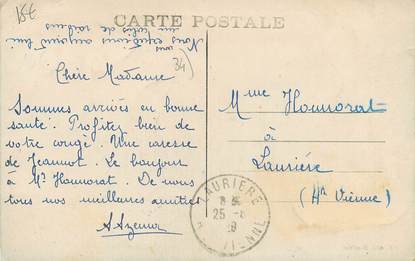 15€
CARTE POSTALE
Nous expédions aujourd'hui
un colis de
34
Chère Madame
Sommes arrivés en bonne
santé. Profitez bien de
votre congé. Une caresse
de Jeannot. Le bonjour
à Mr Hounorat. De nous
tous nos meilleures amitiés
Mme Hounorat
à
Laurière
(Hte Vienne)
LAURIERE
25